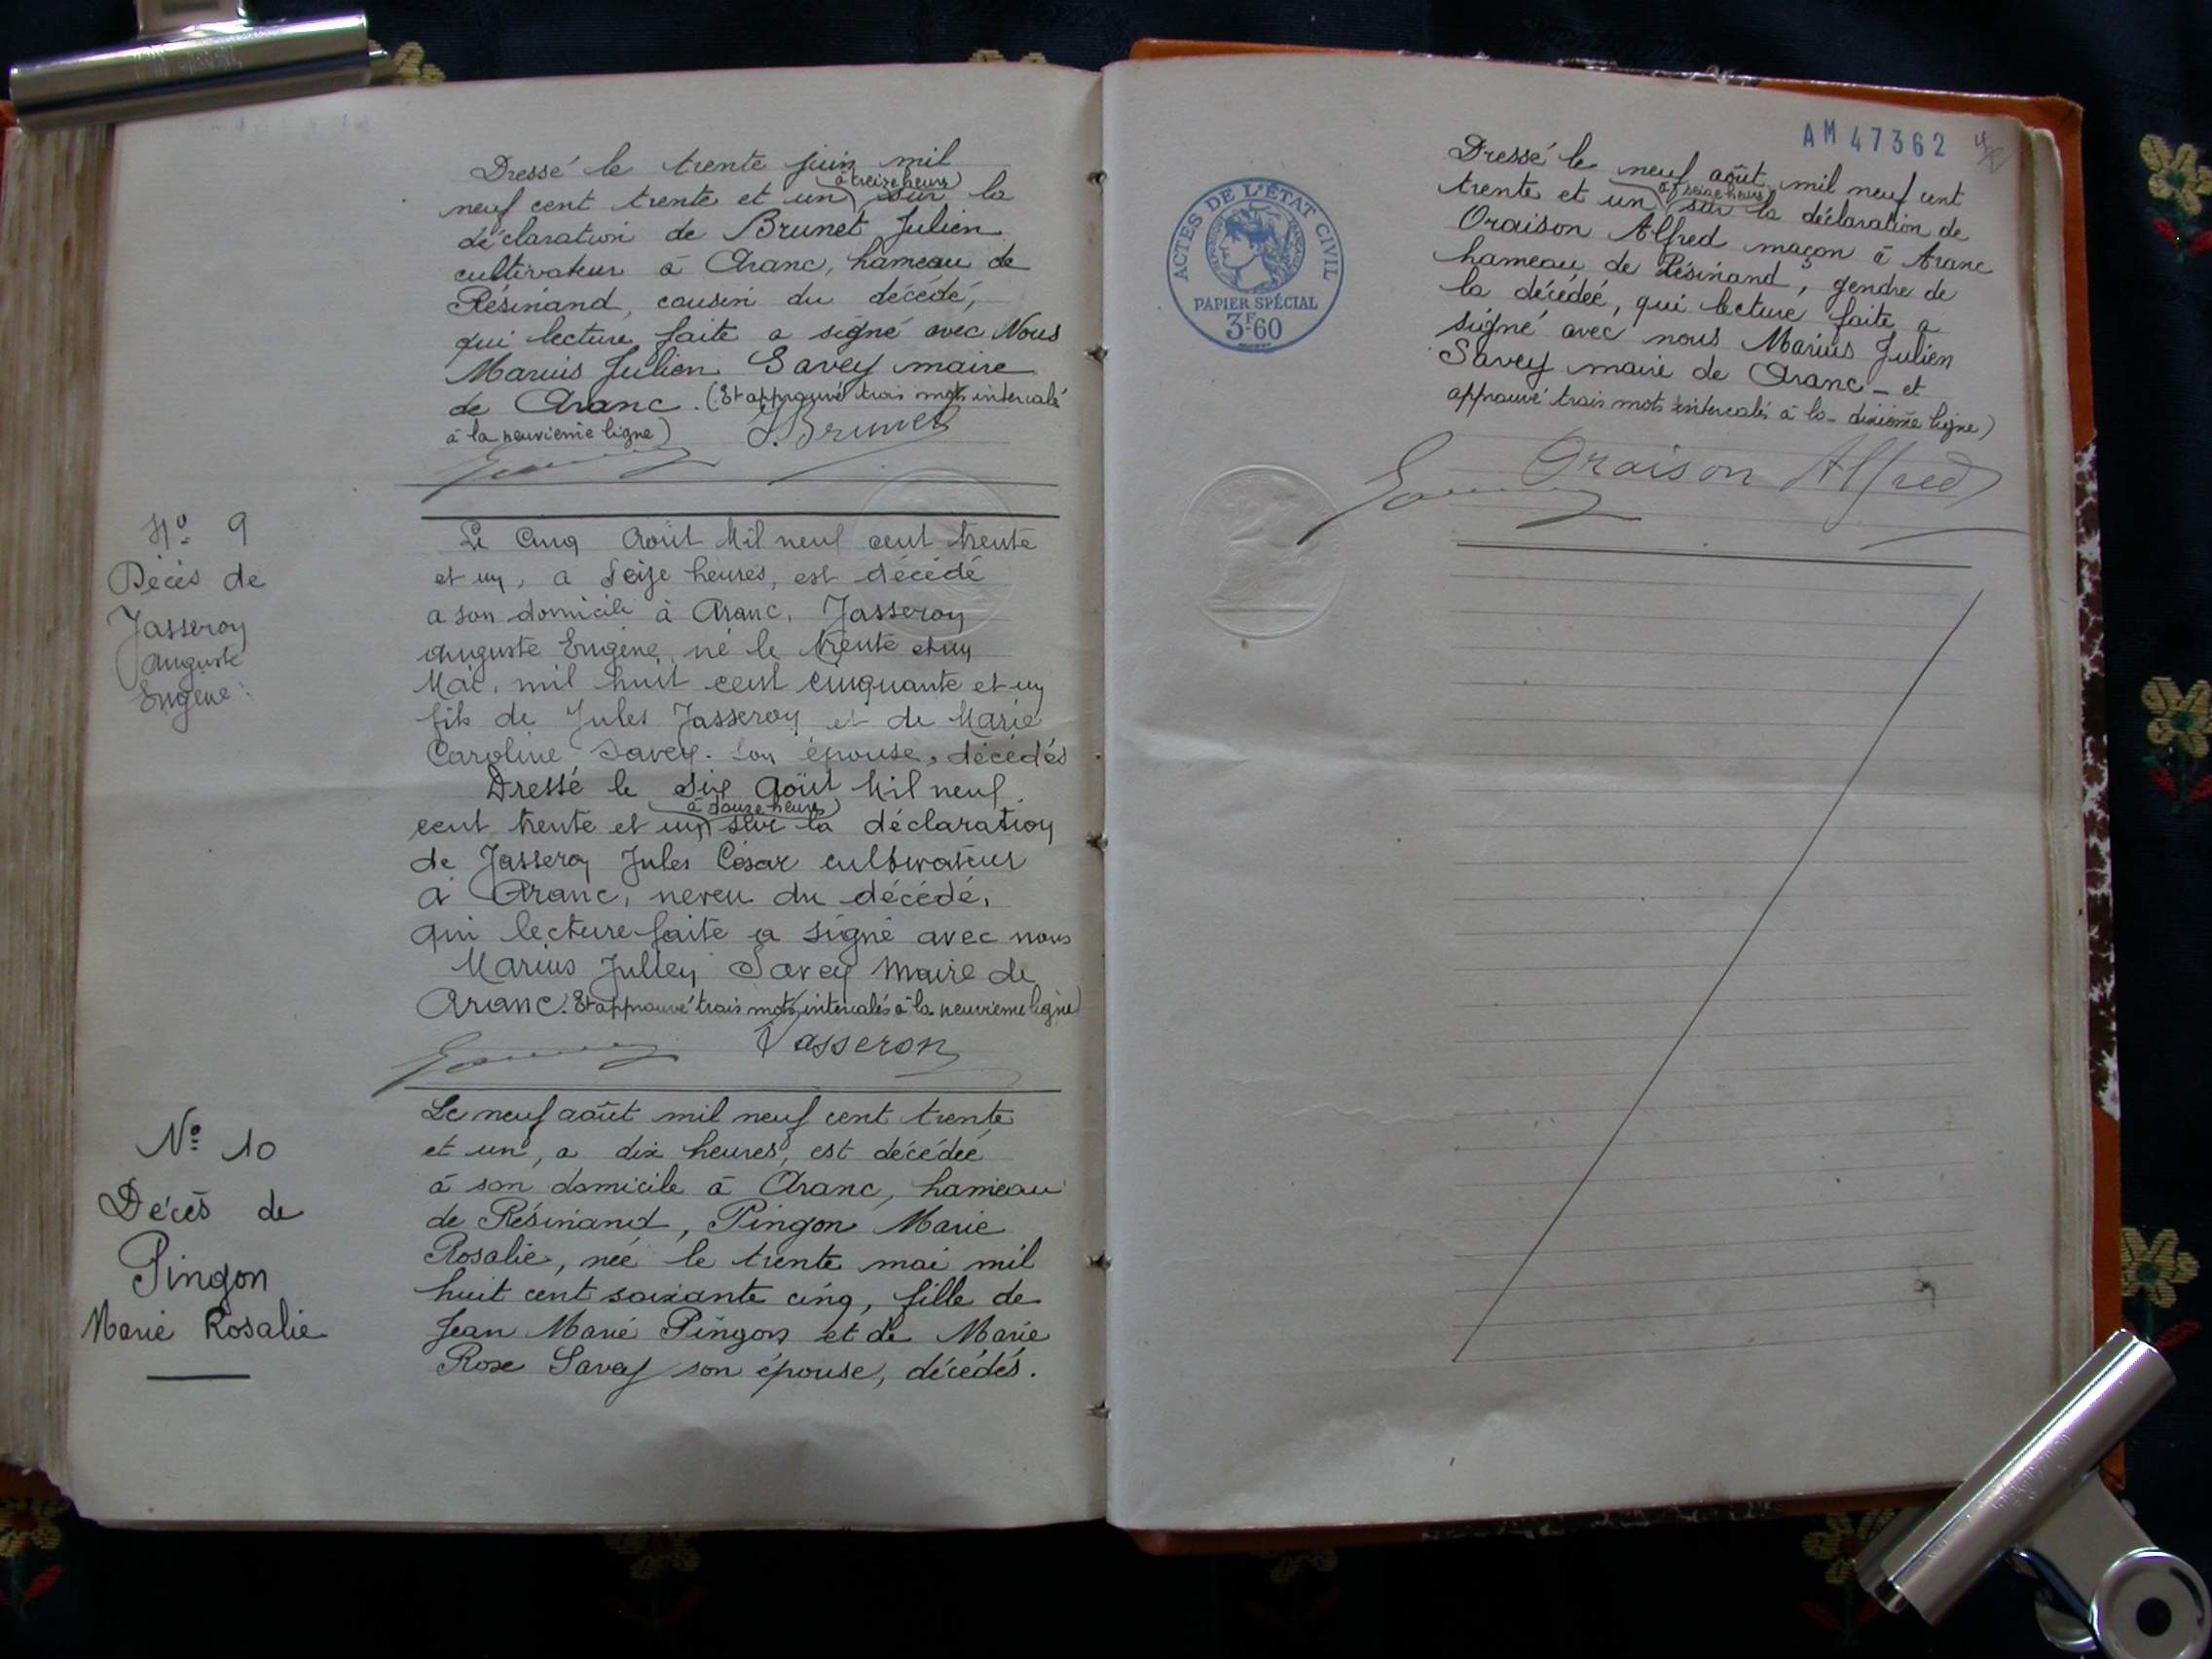 Dressé le trente juin mil
neuf cent trente et un (à treize heures) sur la
déclaration de Brunet Julien
cultivateur à Aranc, hameau de
Résinand, cousin du décédé,
qui lecture faite a signé avec Nous
Marius Julien Savey maire
de Aranc. (Et approuvé trois mots intercalé
à la neuvième ligne) J. Brunet
Nº 9
Décès de
Jasseron
Auguste
Eugène
Le Cinq Août Mil neuf cent trente
et un, a Seize heures, est décédé
a son domicile à Aranc, Jasseron
Auguste Eugène, né le trente et un
Mai, mil huit cent cinquante et un
fils de Jules Jasseron et de Marie
Caroline Savey. Son épouse, décédés
Dressé le Six Août Mil neuf
cent trente et un (à douze heures) sur la déclaration
de Jasseron Jules César cultivateur
à Aranc, neveu du décédé,
qui lecture faite a signé avec nous
Marius Julien Savey Maire de
Aranc. Et approuvé trois mots intercalés à la neuvième ligne)
Jasseron
Nº 10
Décès de
Pingon
Marie Rosalie
Le neuf août mil neuf cent trente
et un, a dix heures, est décédée
à son domicile à Aranc, hameau
de Résinand, Pingon Marie
Rosalie, née le trente mai mil
huit cent soixante cinq, fille de
Jean Marie Pingon et de Marie
Rose Savey son épouse, décédés.
AM 47362
ACTES DE L'ÉTAT CIVIL
PAPIER SPÉCIAL
3F.60
Dressé le neuf août mil neuf cent
trente et un (à seize heures) sur la déclaration de
Oraison Alfred maçon à Aranc
hameau de Résinand, gendre de
la décédée, qui lecture faite a
signé avec nous Marius Julien
Savey maire de Aranc - et
approuvé trois mots intercalés à la dixième ligne)
Oraison Alfred